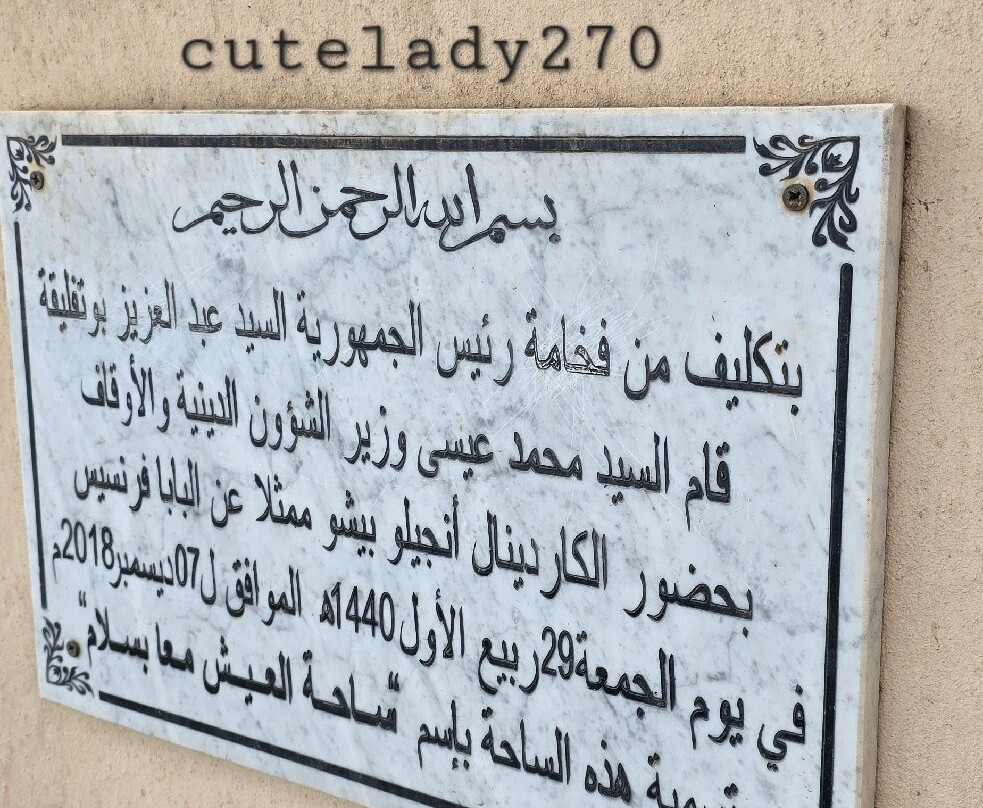 cutelady270
بسم الله الرحمن الرحيم
بتكليف من فخامة رئيس الجمهورية السيد عبد العزيز بوتفليقة
قام السيد محمد عيسى وزير الشؤون الدينية والأوقاف
بحضور الكاردينال أنجيلو بيشو ممثلا عن البابا فرنسيس
في يوم الجمعة29ربيع الأول1440ه الموافق ل07ديسمبر2018م
تسمية هذه الساحة بإسم "ساحة العيش معا بسلام"